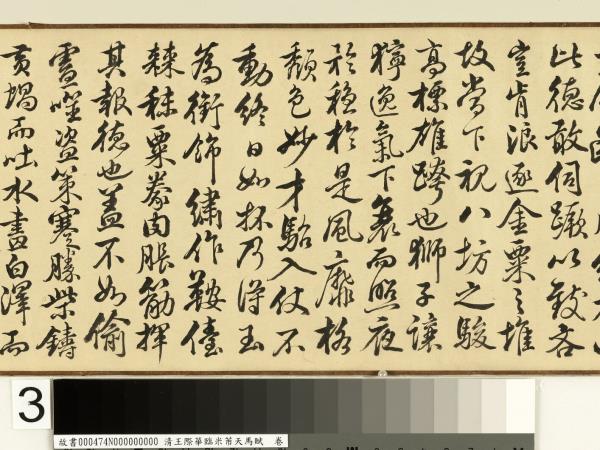 此德敢伺蹶以致吝
豈肯浪逐金粟之堆
故當下視八坊之駿
高標雄跨也獅子讓
獰逸氣下衰而照夜
矜穩於是風靡格
頹色妙才駘入仗不
動終日如杯乃得玉
為銜飾繡作鞍儓
棘秣粟豢肉脹筋揮
其報德也蓋不如偷
盧噬盜策蹇勝柴鑄
黃蝸而吐水畫白澤而
3
故書000474N000000000 清王際華臨米芾天馬賦 卷